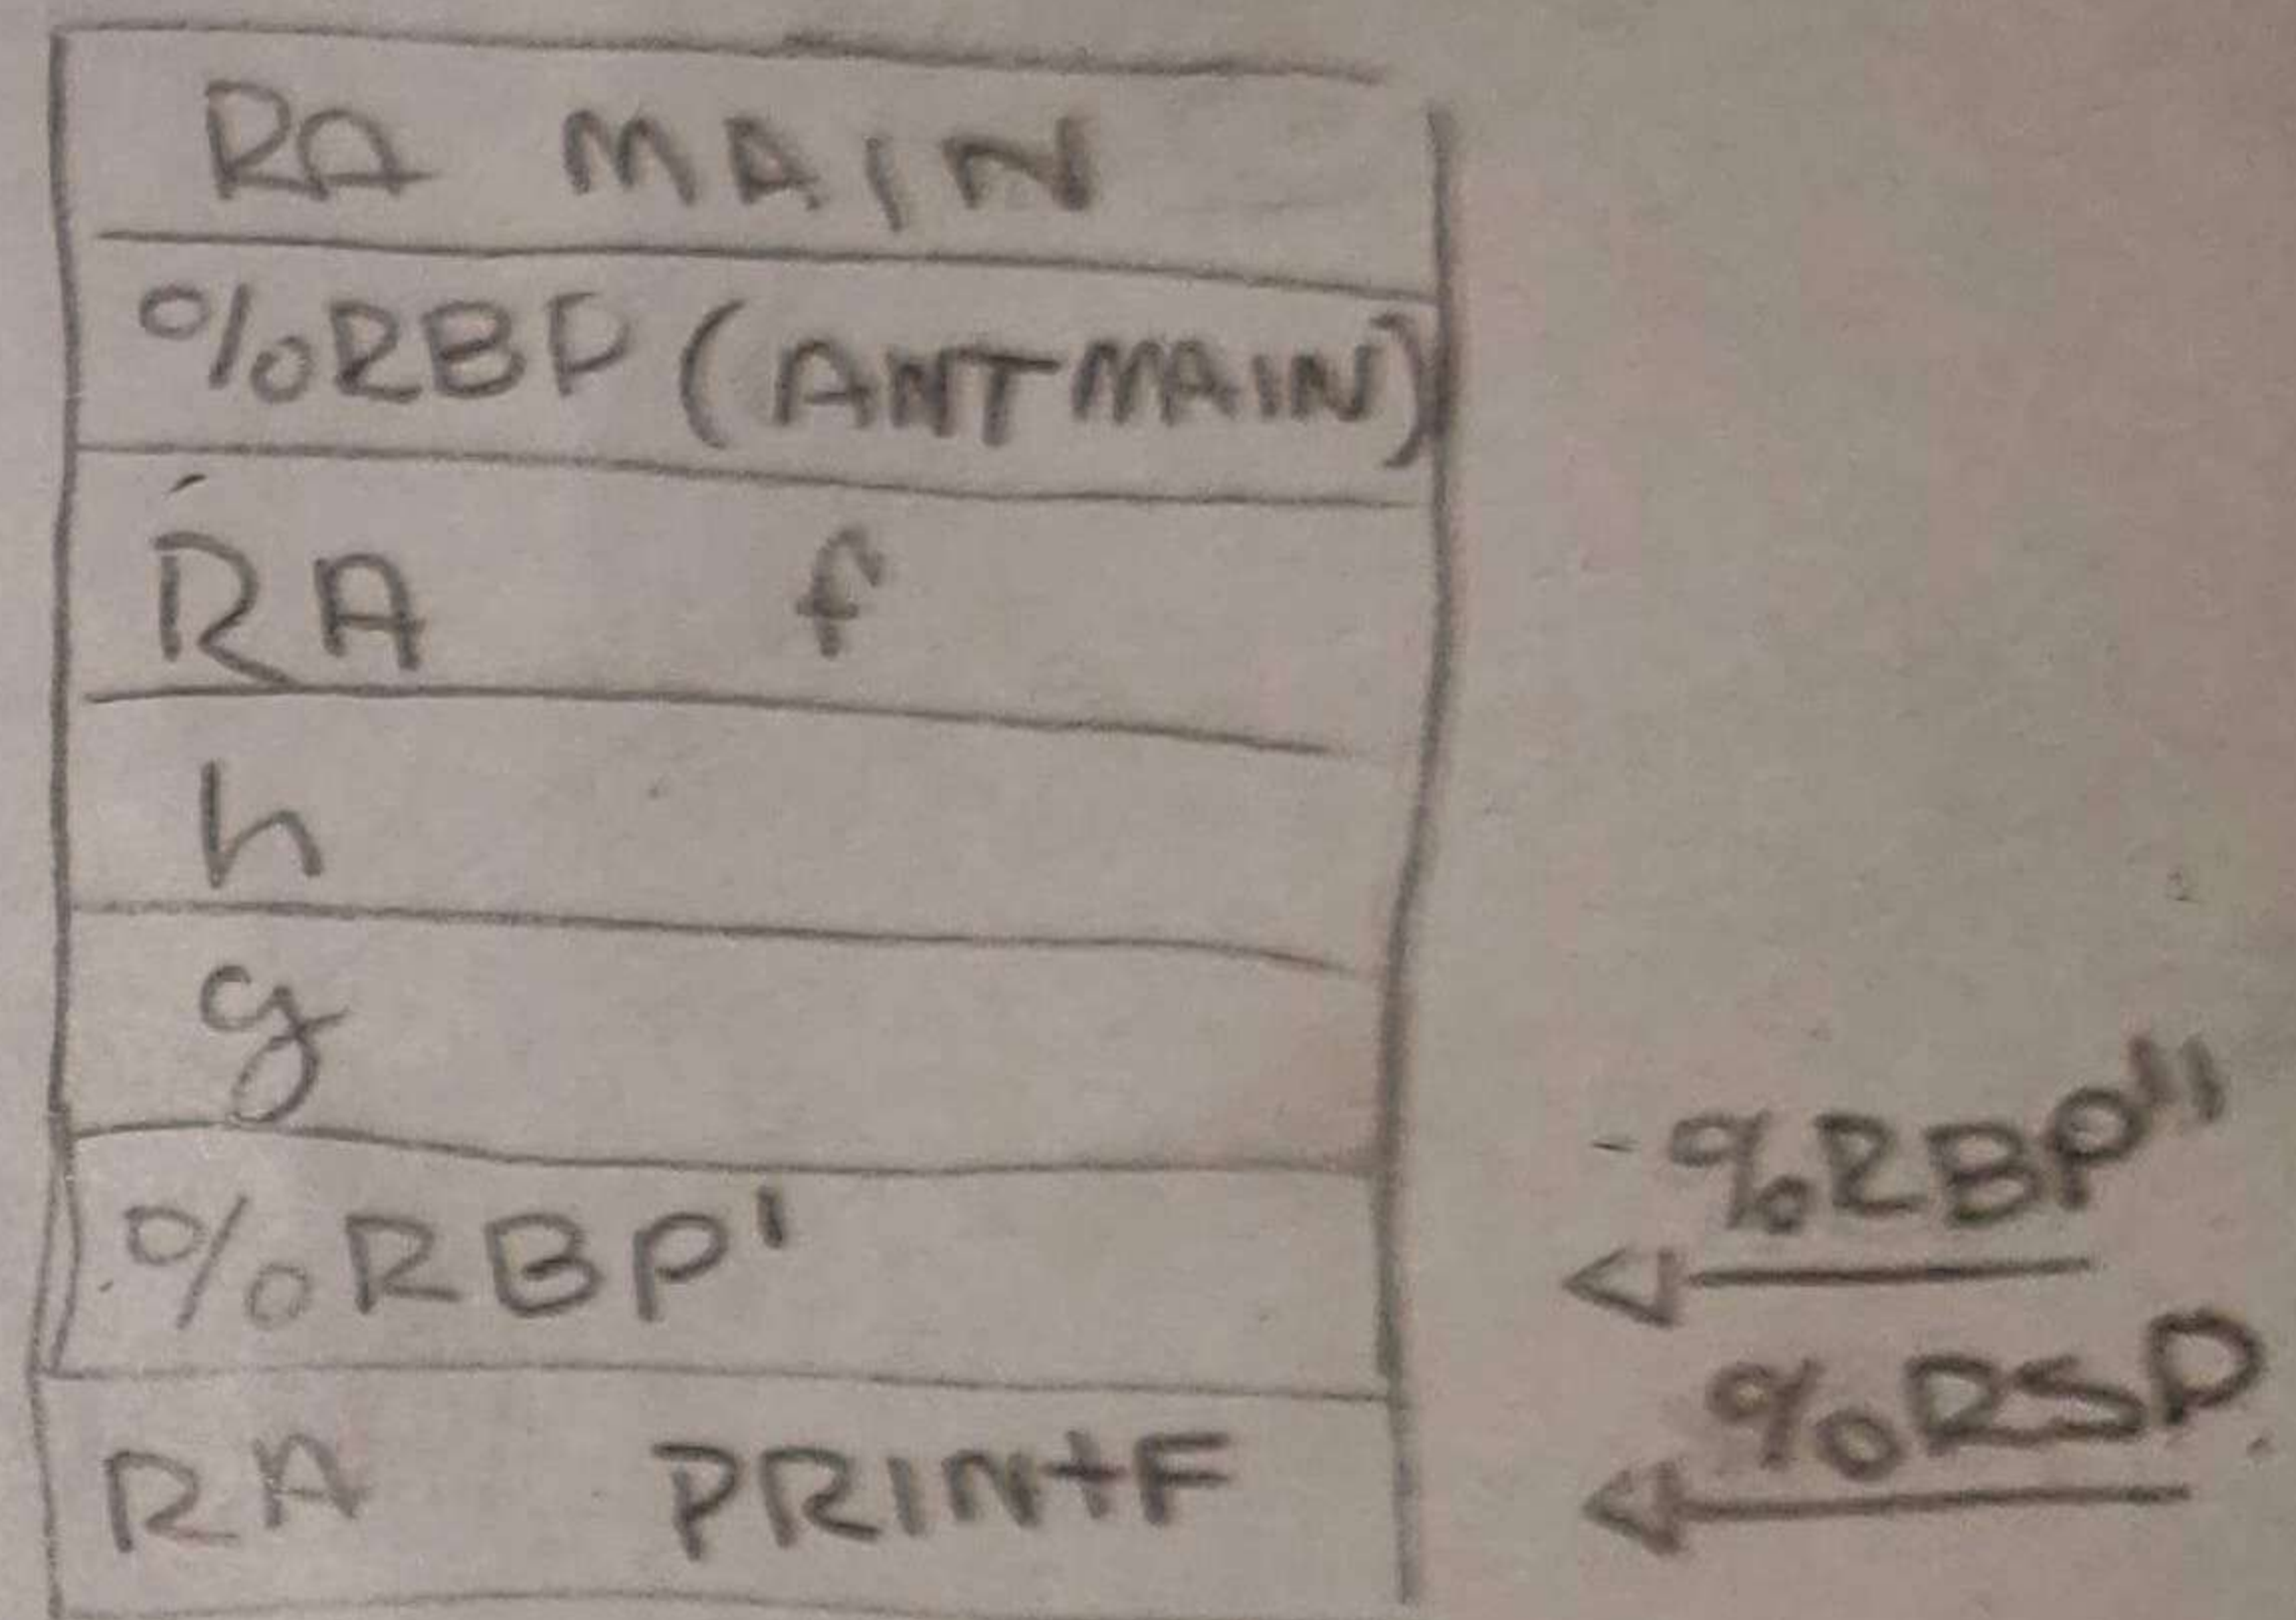 RA MAIN
%RBP (ANTMAIN)
RA f
h
g
%RBP'
%RBP"
RA PRINtF
%RSP